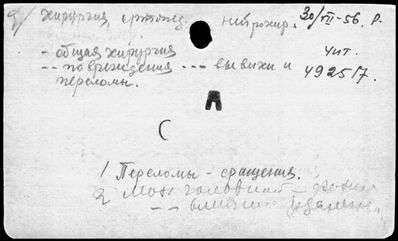 хирургия, ортопед. нейрохир. 30/VII-56. Р.
- общая хирургия чит.
- - повреждения --- вывихи и 492517.
переломы.
А
С
1 Переломы - сращения.
2 Мозг головной -
- -